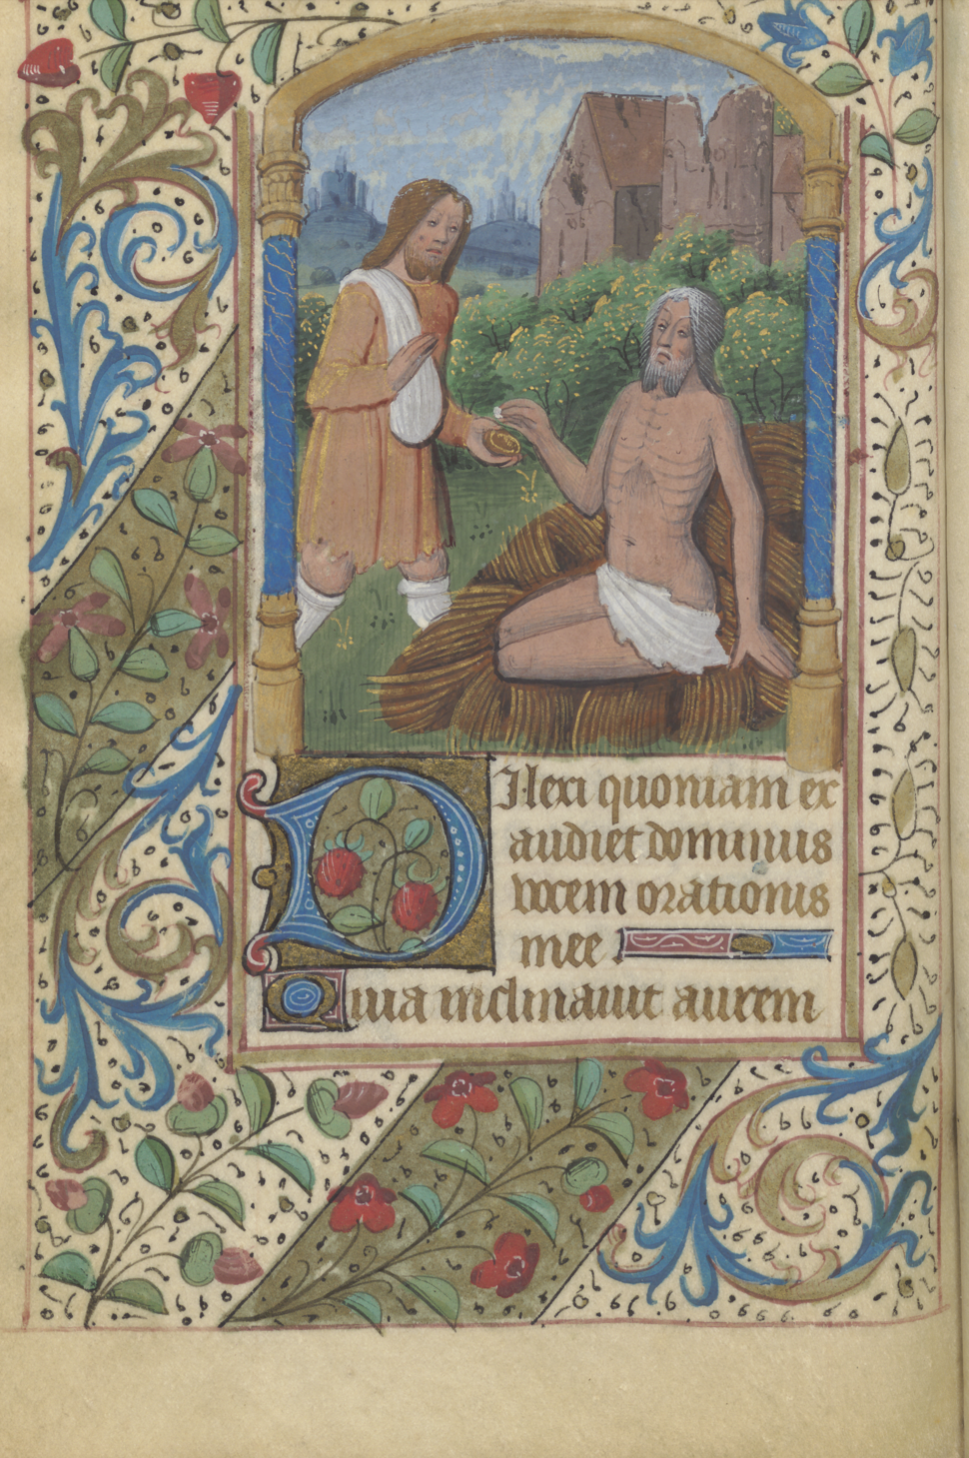 Dilexi quoniam ex
audiet dominus
vocem orationis
mee
Quia inclinauit aurem